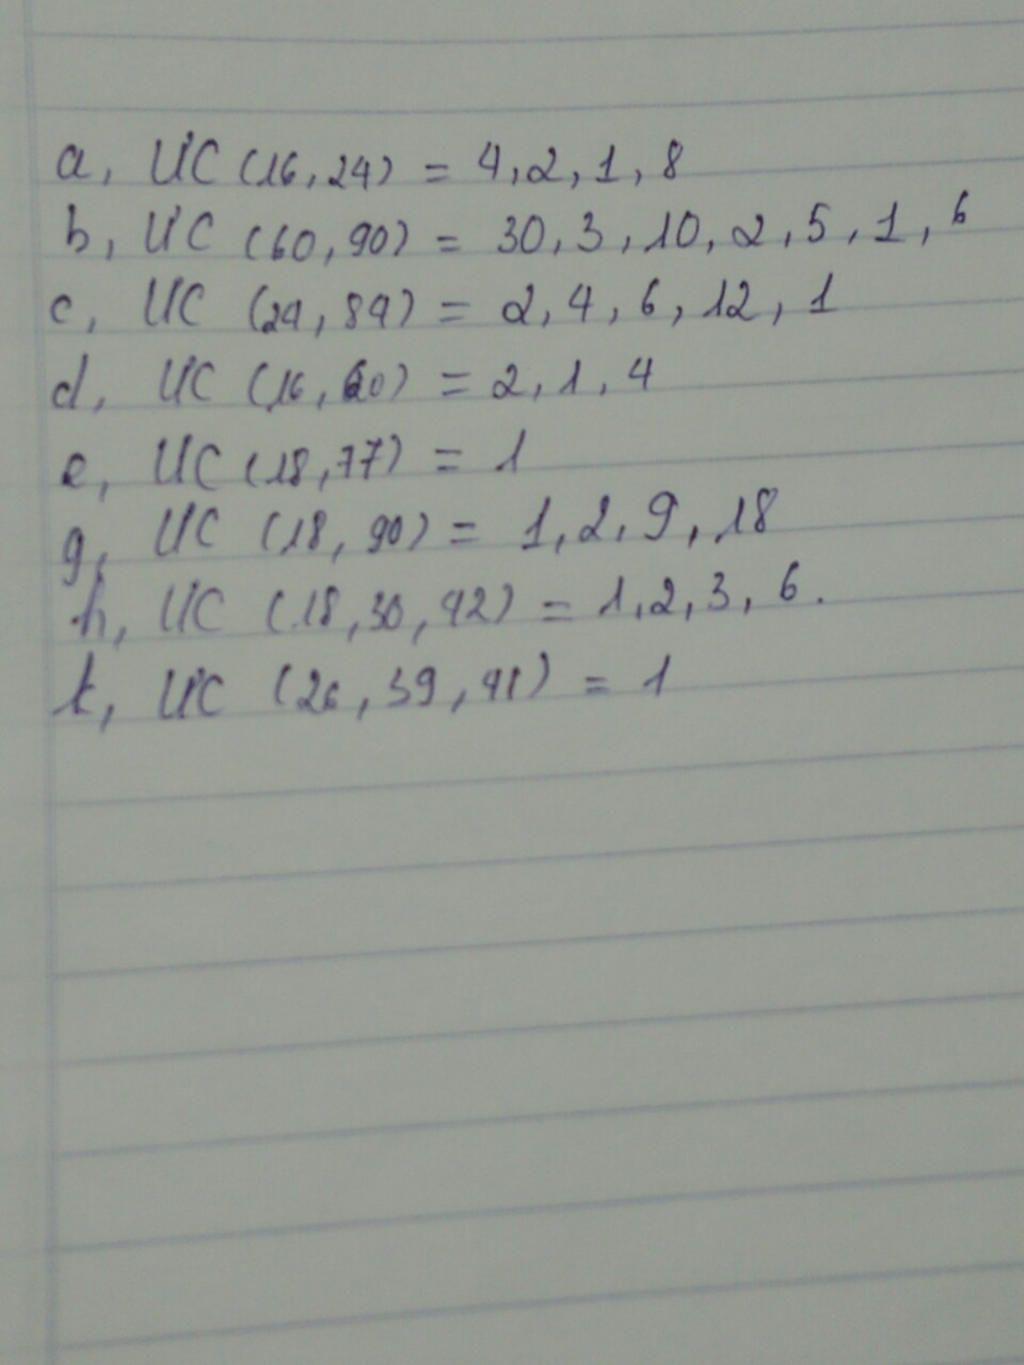 a, ƯC (16,24) = 4,2,1,8
b, ƯC (60,90) = 30,3,10,2,5,1,6
c, ƯC (24,84) = 2,4,6,12,1
d, ƯC (16,60) = 2,1,4
e, ƯC (18,77) = 1
g, ƯC (18,90) = 1,2,9,18
h, ƯC (18,30,42) = 1,2,3,6.
t, ƯC (26,39,48) = 1